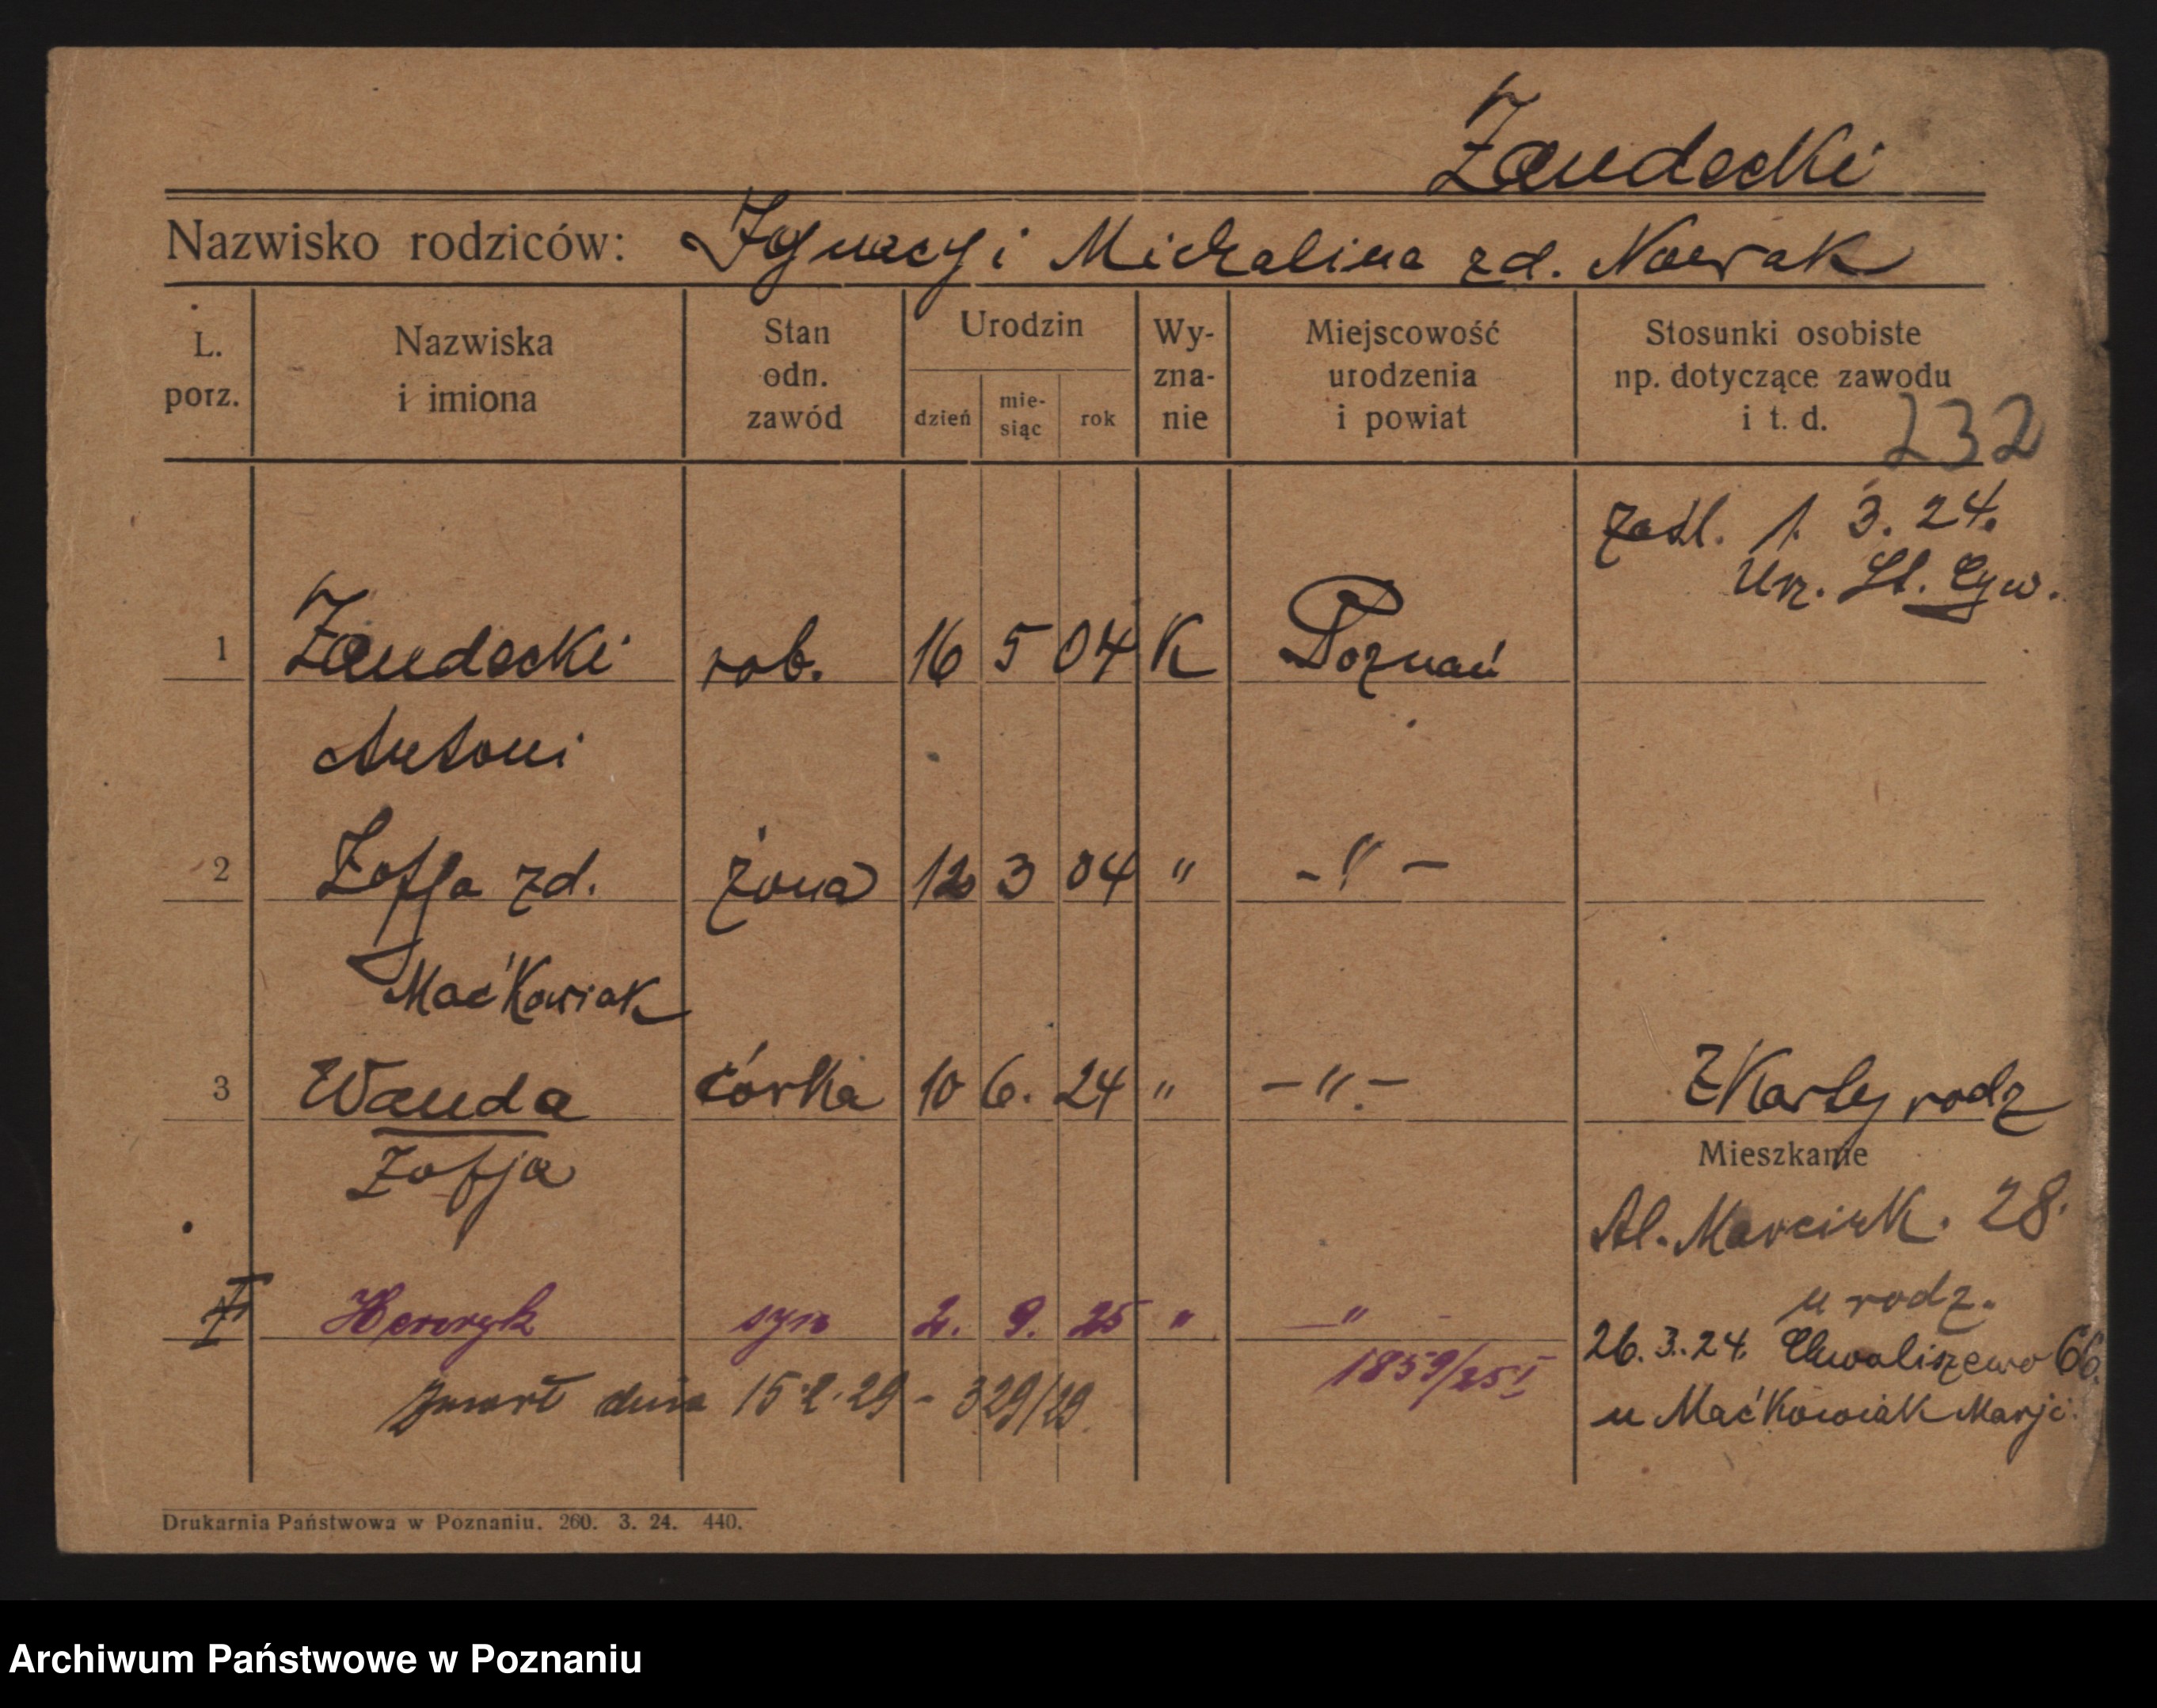 Zandecki
Nazwisko rodziców: Ignacy i Michalina zd. Nowak
L. porz.
Nazwiska i imiona
Stan odn. zawód
Urodzin
dzień
mie-
siąc
rok
Wy-
zna-
nie
Miejscowość urodzenia i powiat
Stosunki osobiste
np. dotyczące zawodu
i t. d.
232
Zaśl. 1. 3. 24.
Urz. St. Cyw.
1 Zandecki rob. 16 5 04 K Poznań
Antoni
2 Zofja zd. żona 12 3 04 " -"-
Maćkowiak
3 Wanda córka 10 6. 24 " -"- Z Karty rodz
Zofja
Mieszkanie
Al. Marcink. 28.
u rodz.
Henryk syn 2. 9. 25 " -"-
26. 3. 24. Chwaliszewo 66.
1859/25 I
zmarł dnia 15.2.29 - 329/29
u Maćkowiak Marji.
Drukarnia Państwowa w Poznaniu. 260. 3. 24. 440.
Archiwum Państwowe w Poznaniu